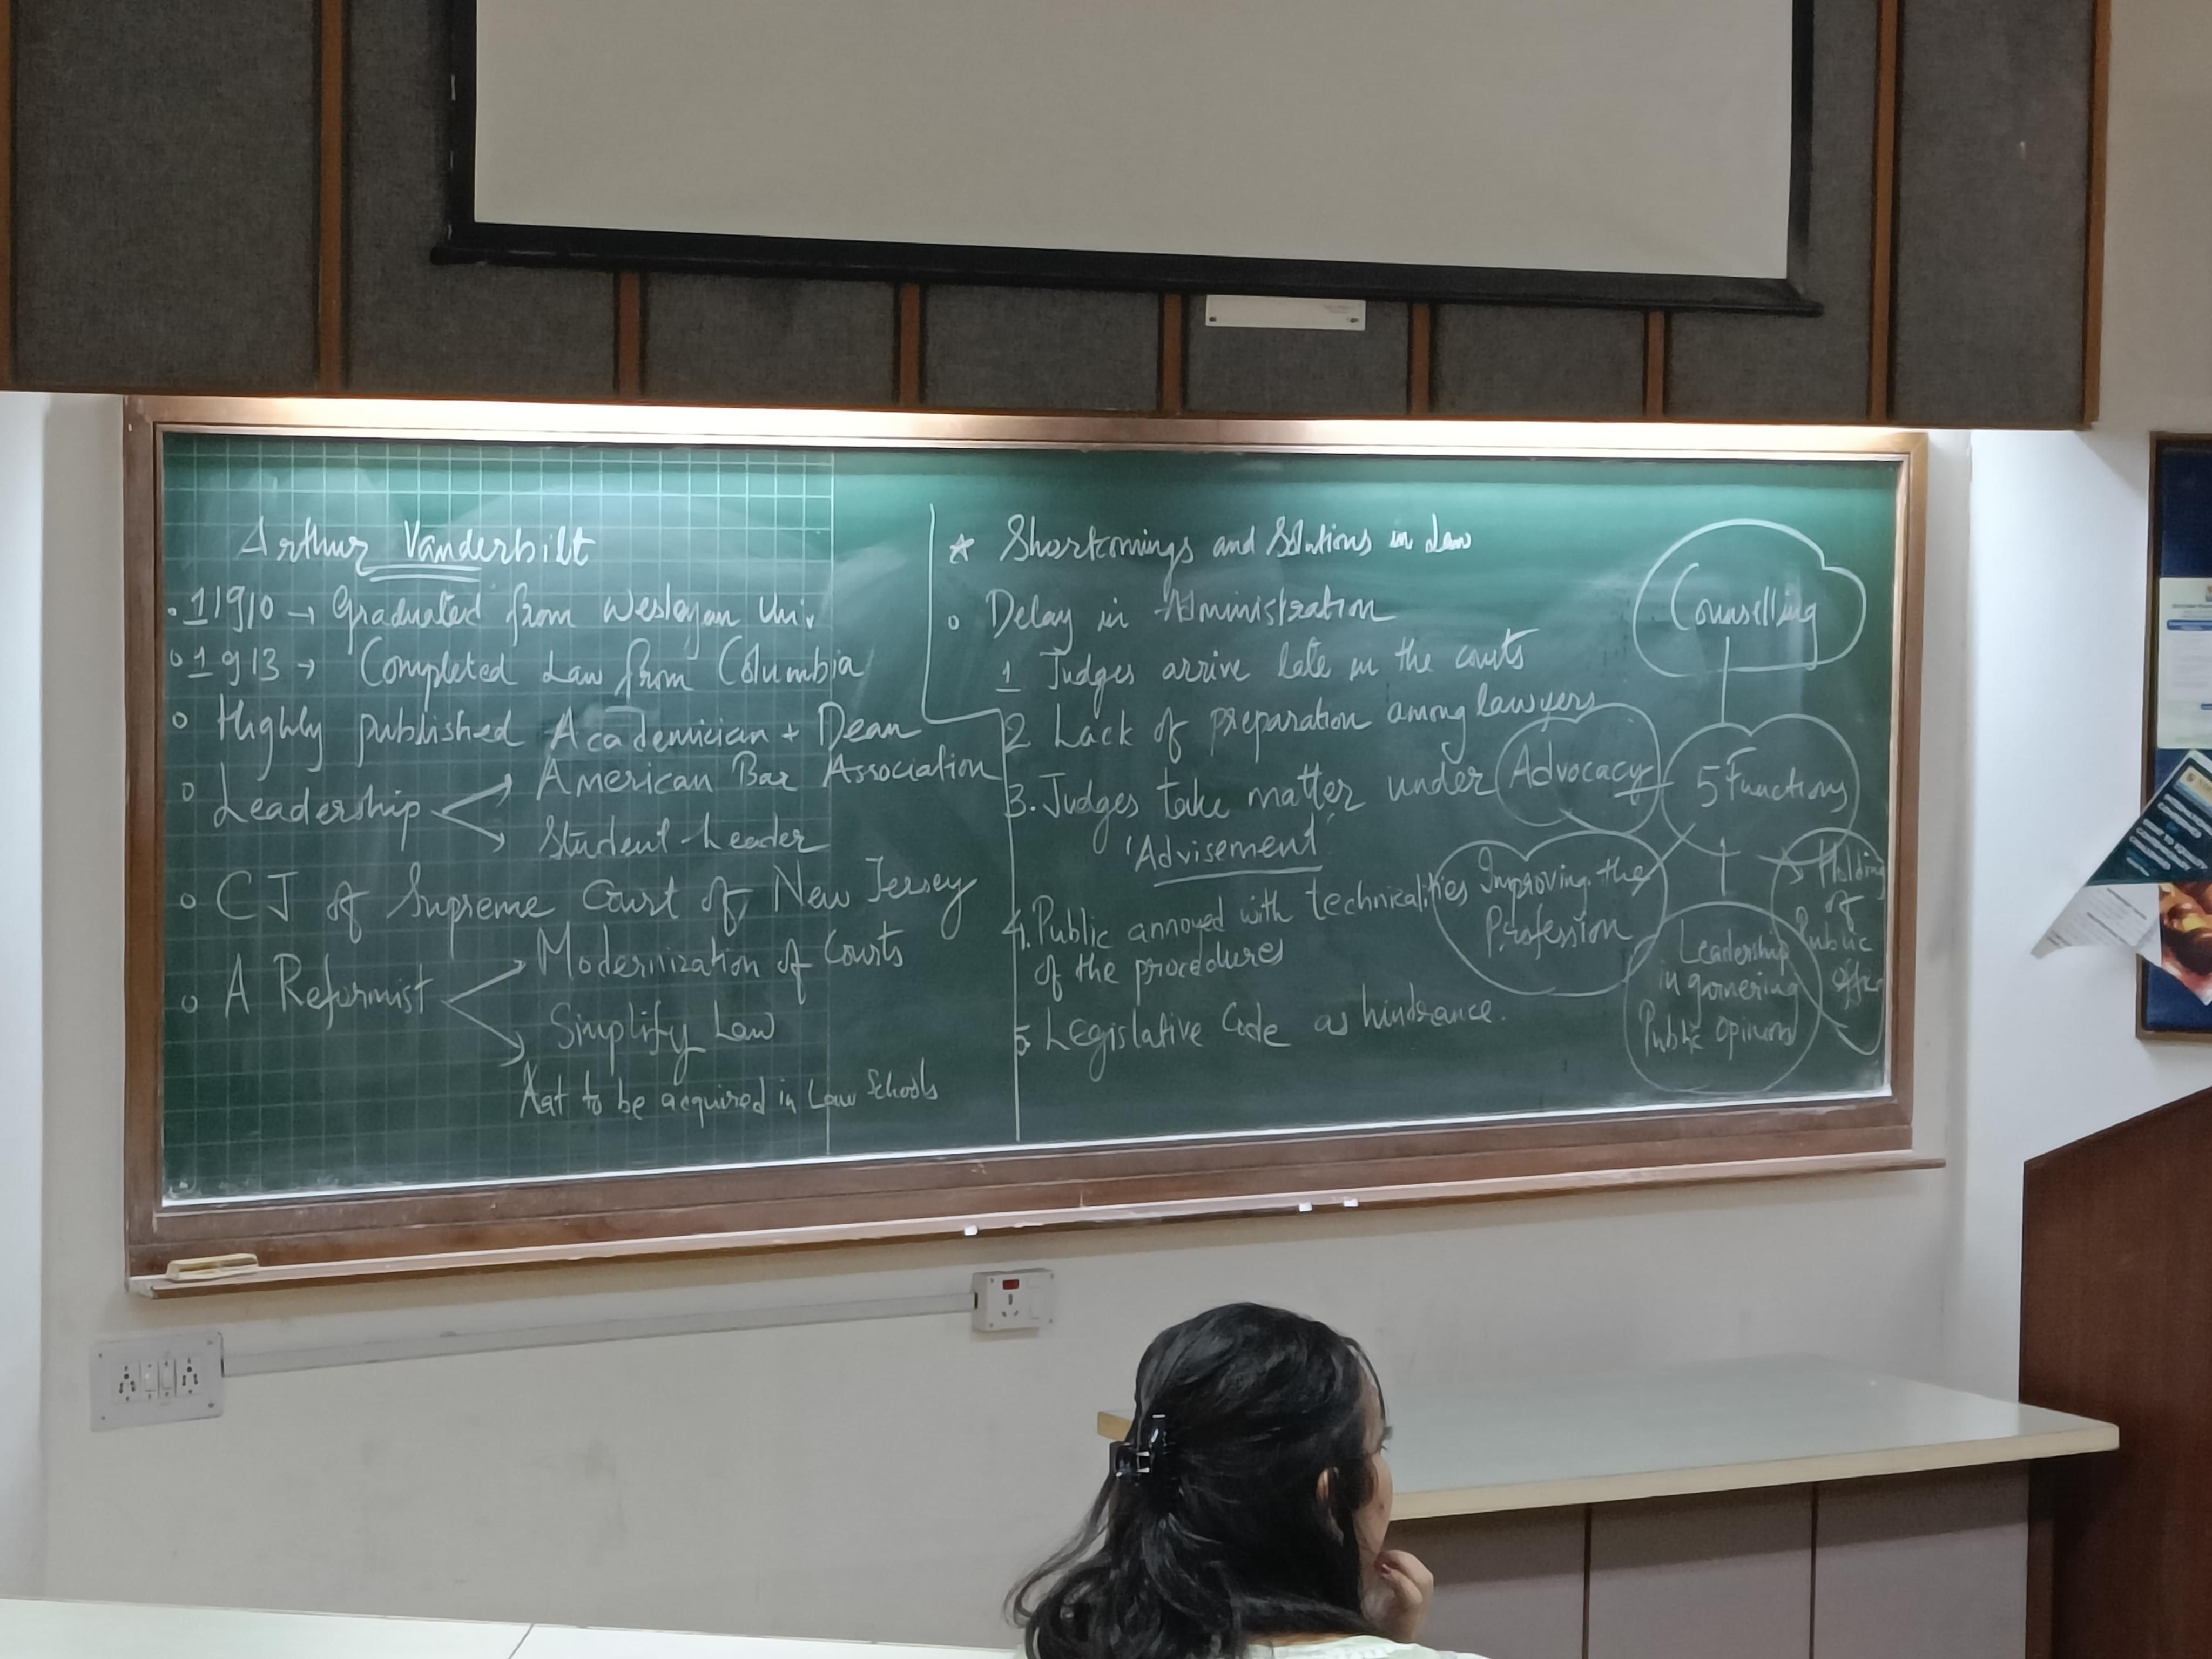 Arthur Vanderbilt
11910 → Graduated from Wesleyan Uni.
1913 → Completed Law from Columbia
Highly published Academician + Dean
Leadership
American Bar Association
Student Leader
CJ of Supreme Court of New Jersey
A Reformist
Modernization of Courts
Simplify Law
Aat to be acquired in Law Schools
* Shortcomings and Solutions in Law
Delay in Administration
1 Judges arrive late in the courts
2 Lack of preparation among lawyers
3. Judges take matter under
'Advisement'
4. Public annoyed with technicalities
of the procedures
5 Legislative Code as hindrance.
Counselling
5 Functions
Advocacy
Improving the
Profession
Leadership
in garnering
Public Opinion
Holding
of
Public